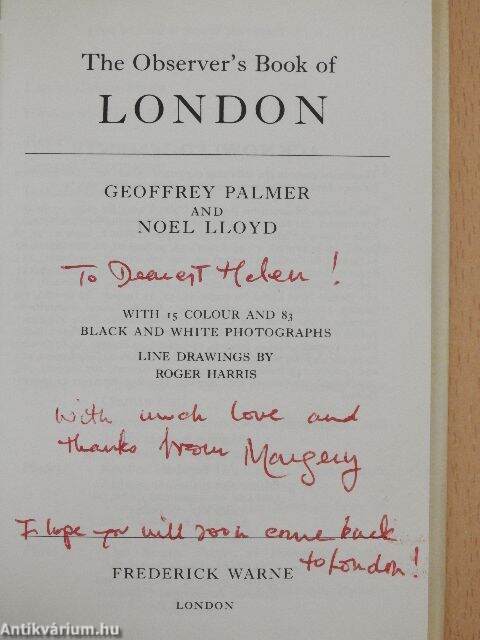 The Observer's Book of
LONDON
GEOFFREY PALMER
AND
NOEL LLOYD
To Dearest Helen!
WITH 15 COLOUR AND 83
BLACK AND WHITE PHOTOGRAPHS
LINE DRAWINGS BY
ROGER HARRIS
With much love and
thanks from Margery
I hope you will soon come back
to London!
FREDERICK WARNE
LONDON
Antikvárium.hu